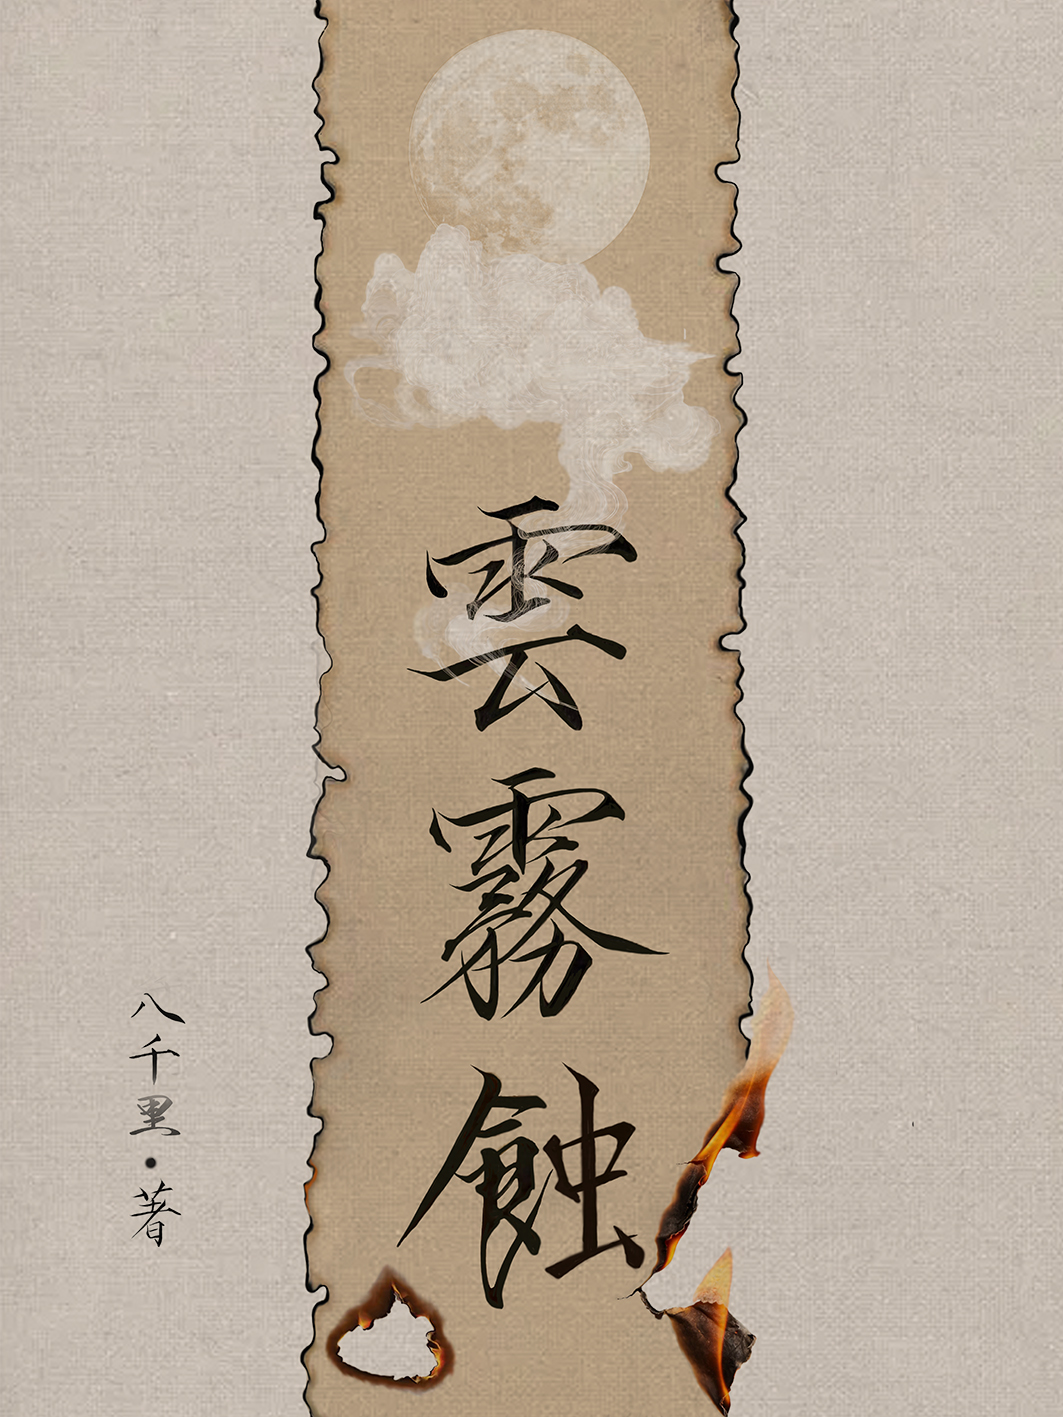 雲霧蝕
八千里·著